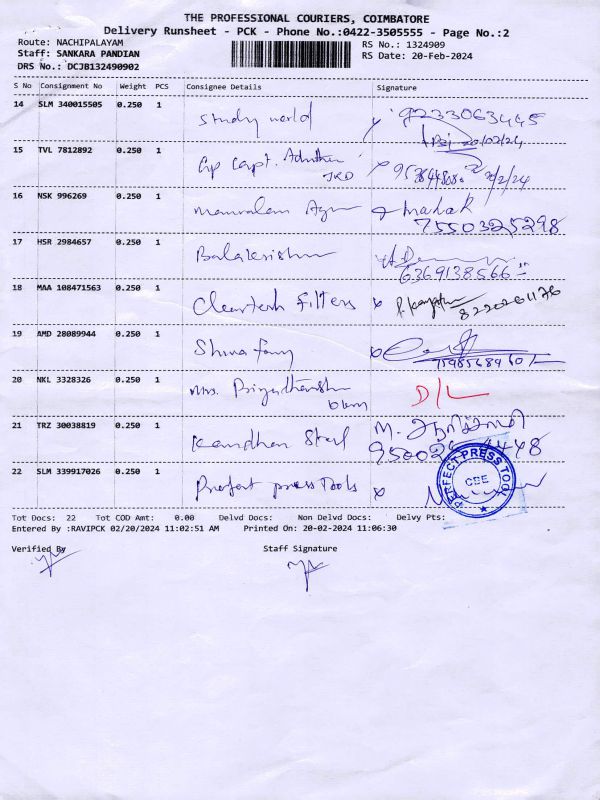 THE PROFESSIONAL COURIERS, COIMBATORE
Delivery Runsheet - PCK - Phone No.:0422-3505555 - Page No.:2
Route: NACHIPALAYAM RS No.: 1324909
Staff: SANKARA PANDIAN RS Date: 20-Feb-2024
DRS No.: DCJB132490902
S No Consignment No Weight PCS Consignee Details Signature
14 SLM 340015505 0.250 1 Study world 9233063445
20/02/24
15 TVL 7812892 0.250 1 Gp Capt.
16 NSK 996269 0.250 1 Mahak
7550325298
17 HSR 2984657 0.250 1 Balakrishnan
6369138566
18 MAA 108471563 0.250 1 Cleartech Filters
19 AMD 28089944 0.250 1
20 NKL 3328326 0.250 1 Mrs. D/L
21 TRZ 30038819 0.250 1 Kandhan Steel M.
22 SLM 339917026 0.250 1 Perfect press Tools
PERFECT PRESS TOOL
CBE
Tot Docs: 22 Tot COD Amt: 0.00 Delvd Docs: Non Delvd Docs: Delvy Pts:
Entered By :RAVIPCK 02/20/2024 11:02:51 AM Printed On: 20-02-2024 11:06:30
Verified By Staff Signature